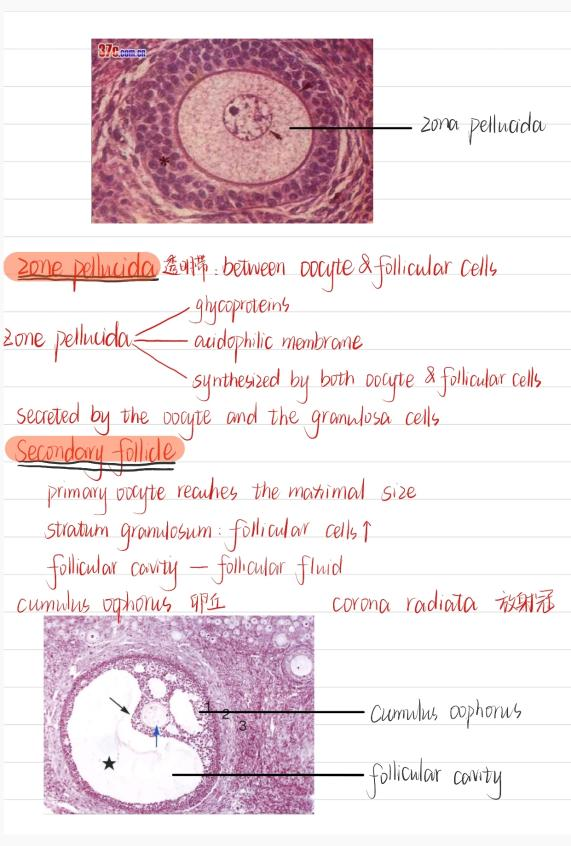 37c.com.cn
zona pellucida
zone pellucida 透明带: between oocyte & follicular cells
glycoproteins
zone pellucida
acidophilic membrane
synthesized by both oocyte & follicular cells
secreted by the oocyte and the granulosa cells
Secondary follicle
primary oocyte reaches the maximal size
stratum granulosum: follicular cells↑
follicular cavity — follicular fluid
cumulus oophorus 卵丘 corona radiata 放射冠
1 2 3
cumulus oophorus
follicular cavity